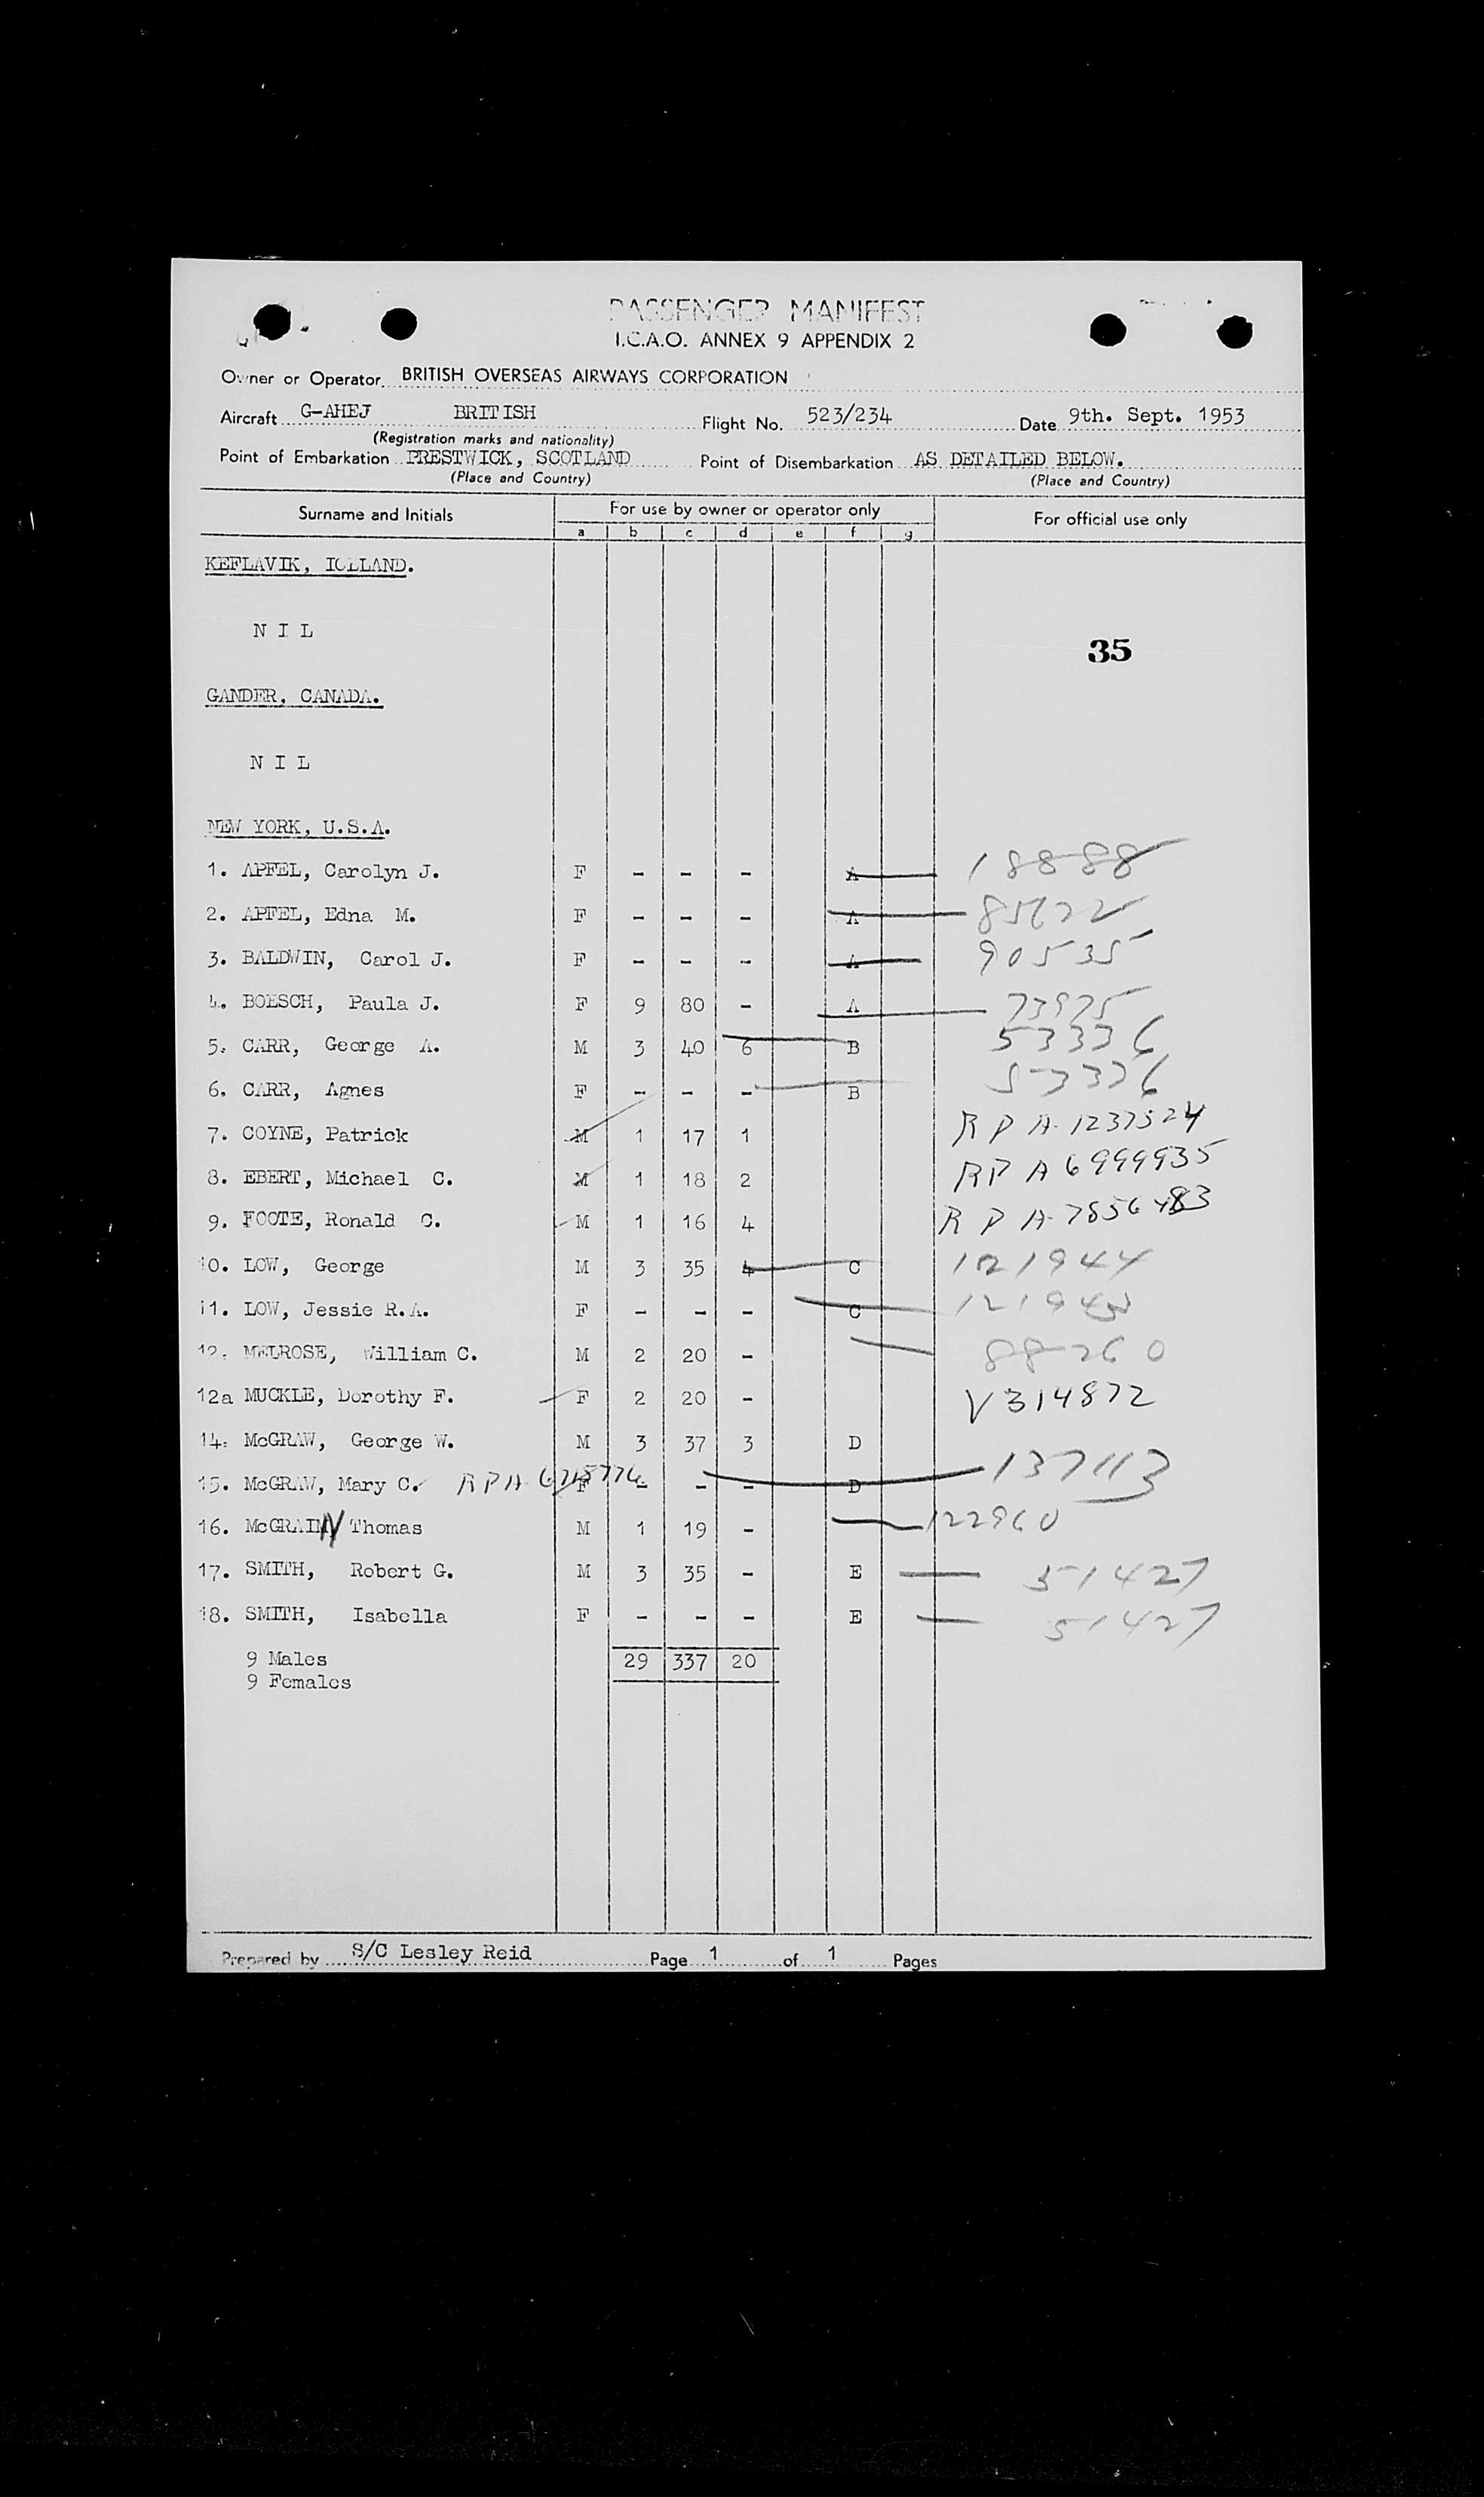 PASSENGER MANIFEST
I.C.A.O. ANNEX 9 APPENDIX 2
Owner or Operator BRITISH OVERSEAS AIRWAYS CORPORATION
Aircraft G-AHEJ BRITISH Flight No. 523/234 Date 9th. Sept. 1953
(Registration marks and nationality)
Point of Embarkation PRESTWICK, SCOTLAND Point of Disembarkation AS DETAILED BELOW.
(Place and Country) (Place and Country)
Surname and Initials For use by owner or operator only For official use only
a b c d e f g
KEFLAVIK, ICELAND.
N I L
35
GANDER, CANADA.
N I L
NEW YORK, U.S.A.
1. APFEL, Carolyn J. F - - - A 18888
2. APFEL, Edna M. F - - - A
3. BALDWIN, Carol J. F - - - A 90535
4. BOESCH, Paula J. F 9 80 - A 73975
5. CARR, George A. M 3 40 6 B 53336
6. CARR, Agnes F - - - B 53336
7. COYNE, Patrick M 1 17 1 RPA-1237524
8. EBERT, Michael C. M 1 18 2 RPA 6999935
9. FOOTE, Ronald C. M 1 16 4 RPA-7856483
10. LOW, George M 3 35 4 C 121944
11. LOW, Jessie R.A. F - - - C
12. MELROSE, William C. M 2 20 - 88260
12a MUCKLE, Dorothy F. F 2 20 - V314872
14. McGRAW, George W. M 3 37 3 D
15. McGRAW, Mary C. RPA F - - - D 137113
16. McGRAIN Thomas M 1 19 - 122960
17. SMITH, Robert G. M 3 35 - E 51427
18. SMITH, Isabella F - - - E 51427
9 Males 29 337 20
9 Females
Prepared by S/C Lesley Reid Page 1 of 1 Pages